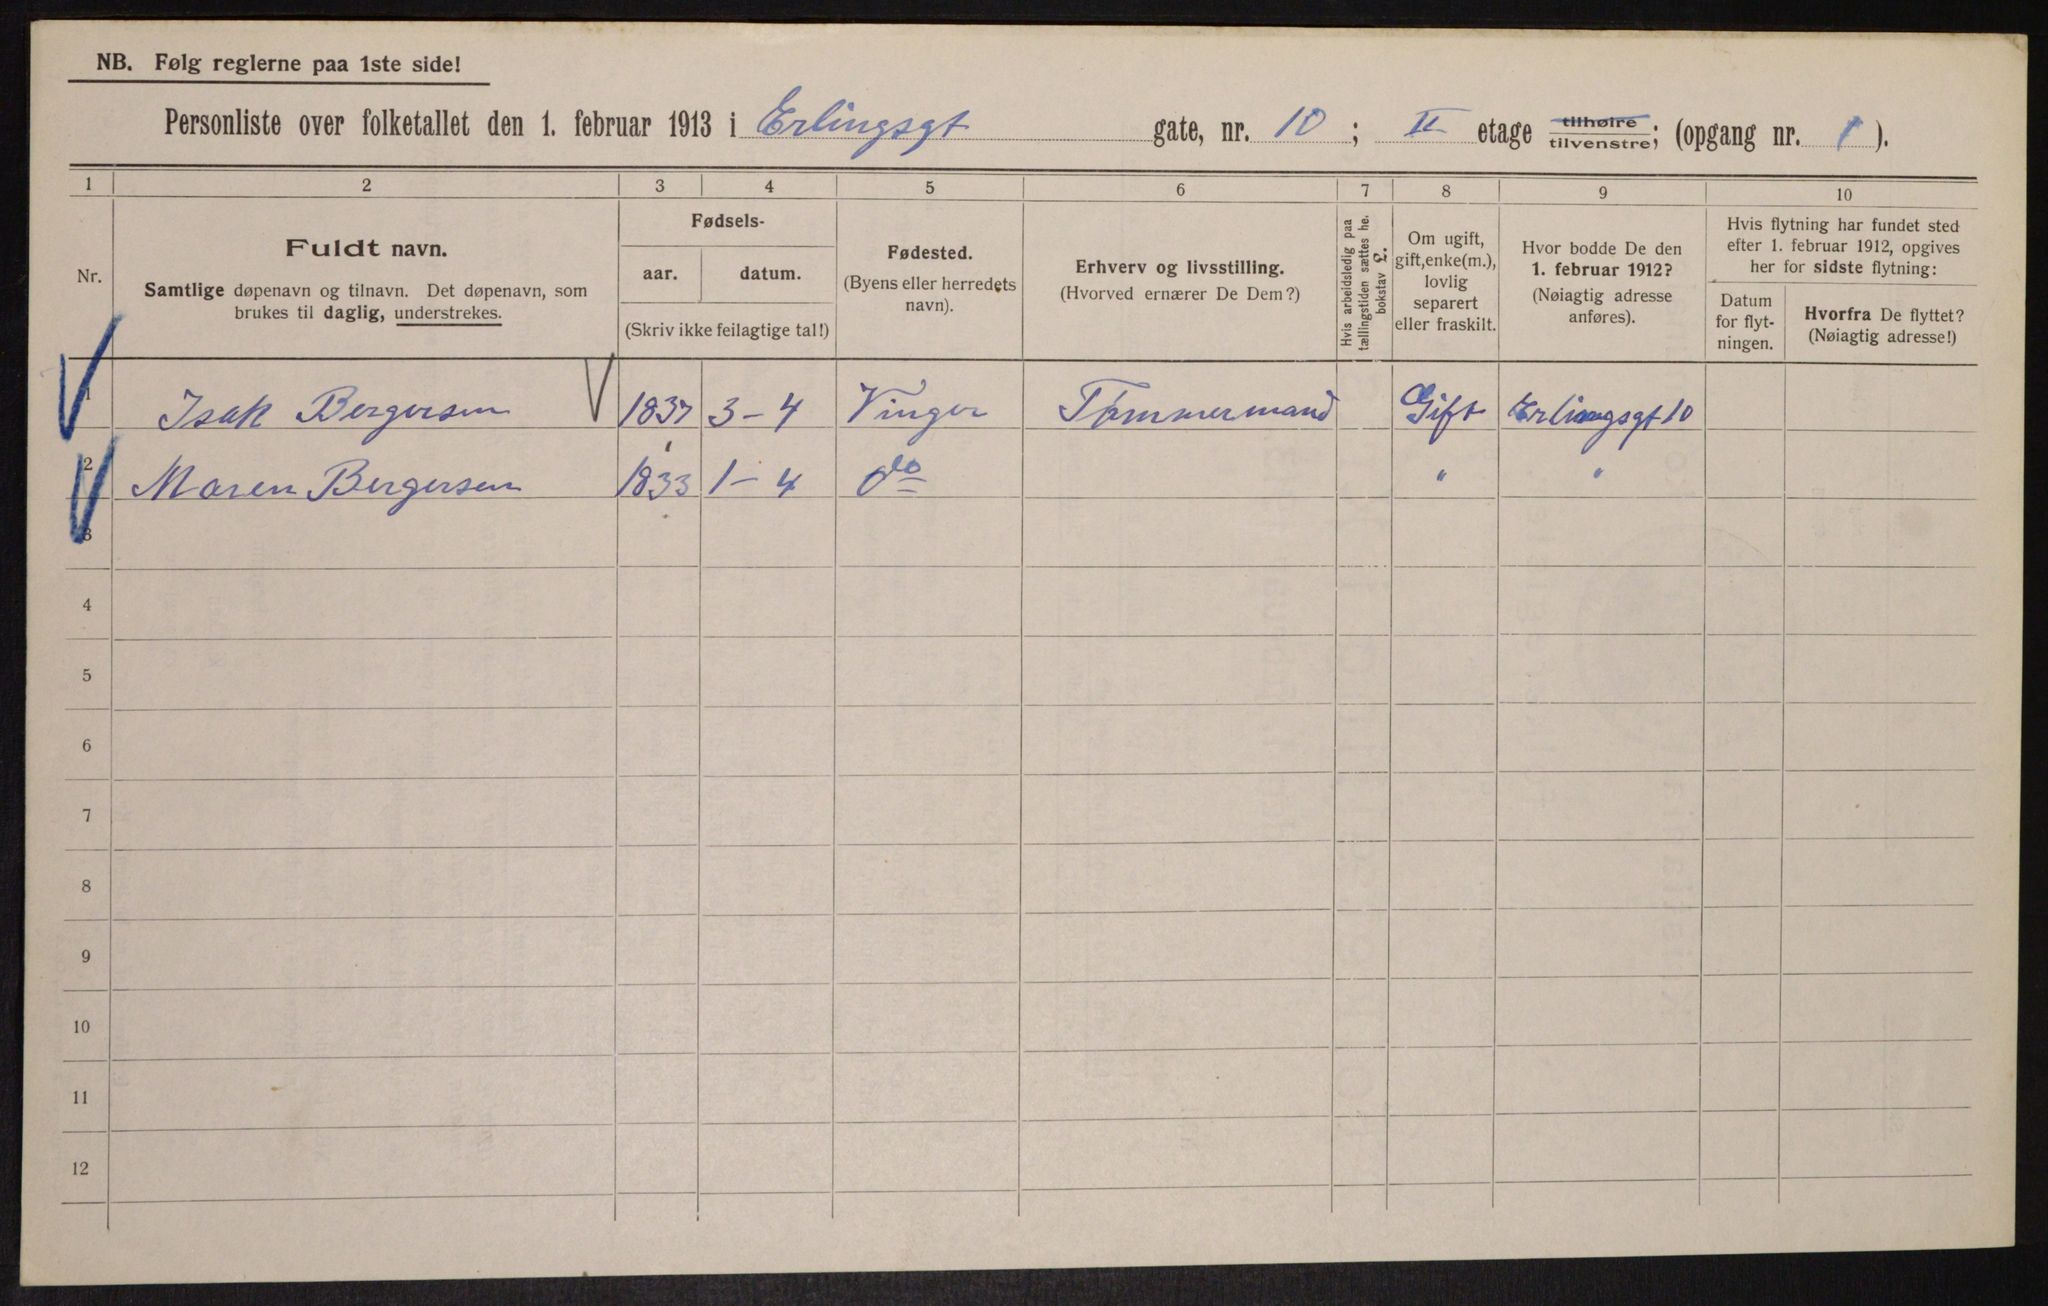 NB. Følg reglerne paa 1ste side!
Personliste over folketallet den 1. februar 1913 i Erlingsgt gate, nr. 10; II etage tilhøire tilvenstre; (opgang nr. 1).
1 2 3 4 5 6 7 8 9 10
Nr.
Fuldt navn.
Samtlige døpenavn og tilnavn. Det døpenavn, som
brukes til daglig, understrekes.
Fødsels-
aar. datum.
(Skriv ikke feilagtige tal!)
Fødested.
(Byens eller herredets
navn).
Erhverv og livsstilling.
(Hvorved ernærer De Dem?)
Hvis arbeidsledig paa
tællingstiden sættes he.
bokstav L.
Om ugift,
gift, enke(m.),
lovlig
separert
eller fraskilt.
Hvor bodde De den
1. februar 1912?
(Nøiagtig adresse
anføres).
Hvis flytning har fundet sted
efter 1. februar 1912, opgives
her for sidste flytning:
Datum
for flyt-
ningen.
Hvorfra De flyttet?
(Nøiagtig adresse!)
1 Isak Bergersen 1837 3-4 Vinger Tømmermand Gift Erlingsgt 10
2 Maren Bergersen 1833 1-4 do " "
3
4
5
6
7
8
9
10
11
12